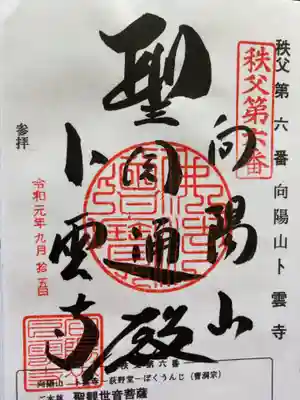 秩父第六番向陽山卜雲寺
秩父第六番
向陽山
聖円通殿
卜雲寺
参拝
令和元年九月拾五日
秩父第六番
向陽山 卜雲寺―荻野堂―ぼくうんじ(曹洞宗)
ご本尊 聖観世音菩薩